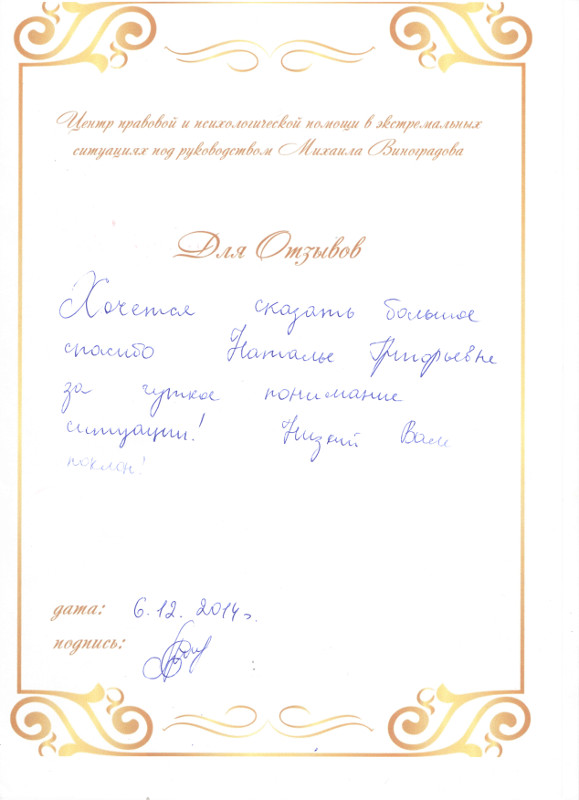 Центр правовой и психологической помощи в экстремальных
ситуациях под руководством Михаила Виноградова
Для Отзывов
Хочется сказать большое
спасибо Наталье Григорьевне
за чуткое понимание
ситуации! Низкий Вам
поклон!
дата: 6.12.2014г.
подпись: